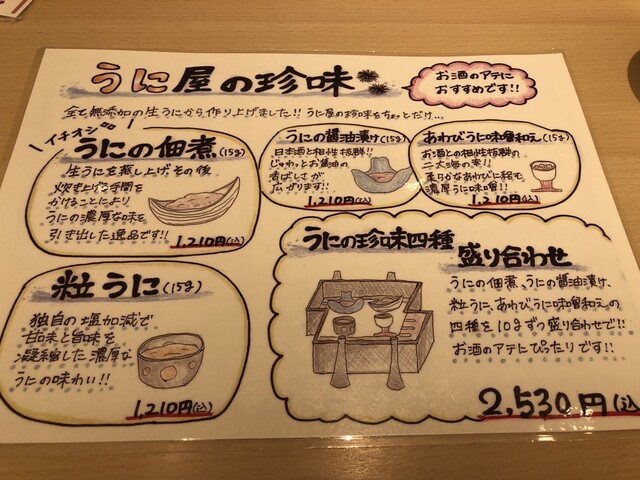 うに屋の珍味
お酒のアテに
おすすめです!!
全て無添加の生うにから作り上げました!! うに屋の珍味をちょっとだけ...
イチオシ
うにの佃煮(15g)
生うにを蒸し上げその後
炊き上げ手間を
かけることにより
うにの濃厚な味を
引き出した逸品です!!
1,210円(込)
うにの醤油漬け(15g)
日本酒と相性抜群!!
じゅわっとお醤油の
香ばしさが
広がります!!
1,210円(込)
あわびうに味噌和え(15g)
お酒との相性抜群の
二大海の素!!
柔らかなあわびに絡む
濃厚うに味噌!!
1,210円(込)
粒うに(15g)
独自の塩加減で
甘味と旨味を
凝縮した濃厚な
うにの味わい!!
1,210円(込)
うにの珍味四種
盛り合わせ
うにの佃煮、うにの醤油漬け、
粒うに、あわびうに味噌和えの
四種を10gずつ盛り合わせで!!
お酒のアテにぴったりです!!
2,530円(込)